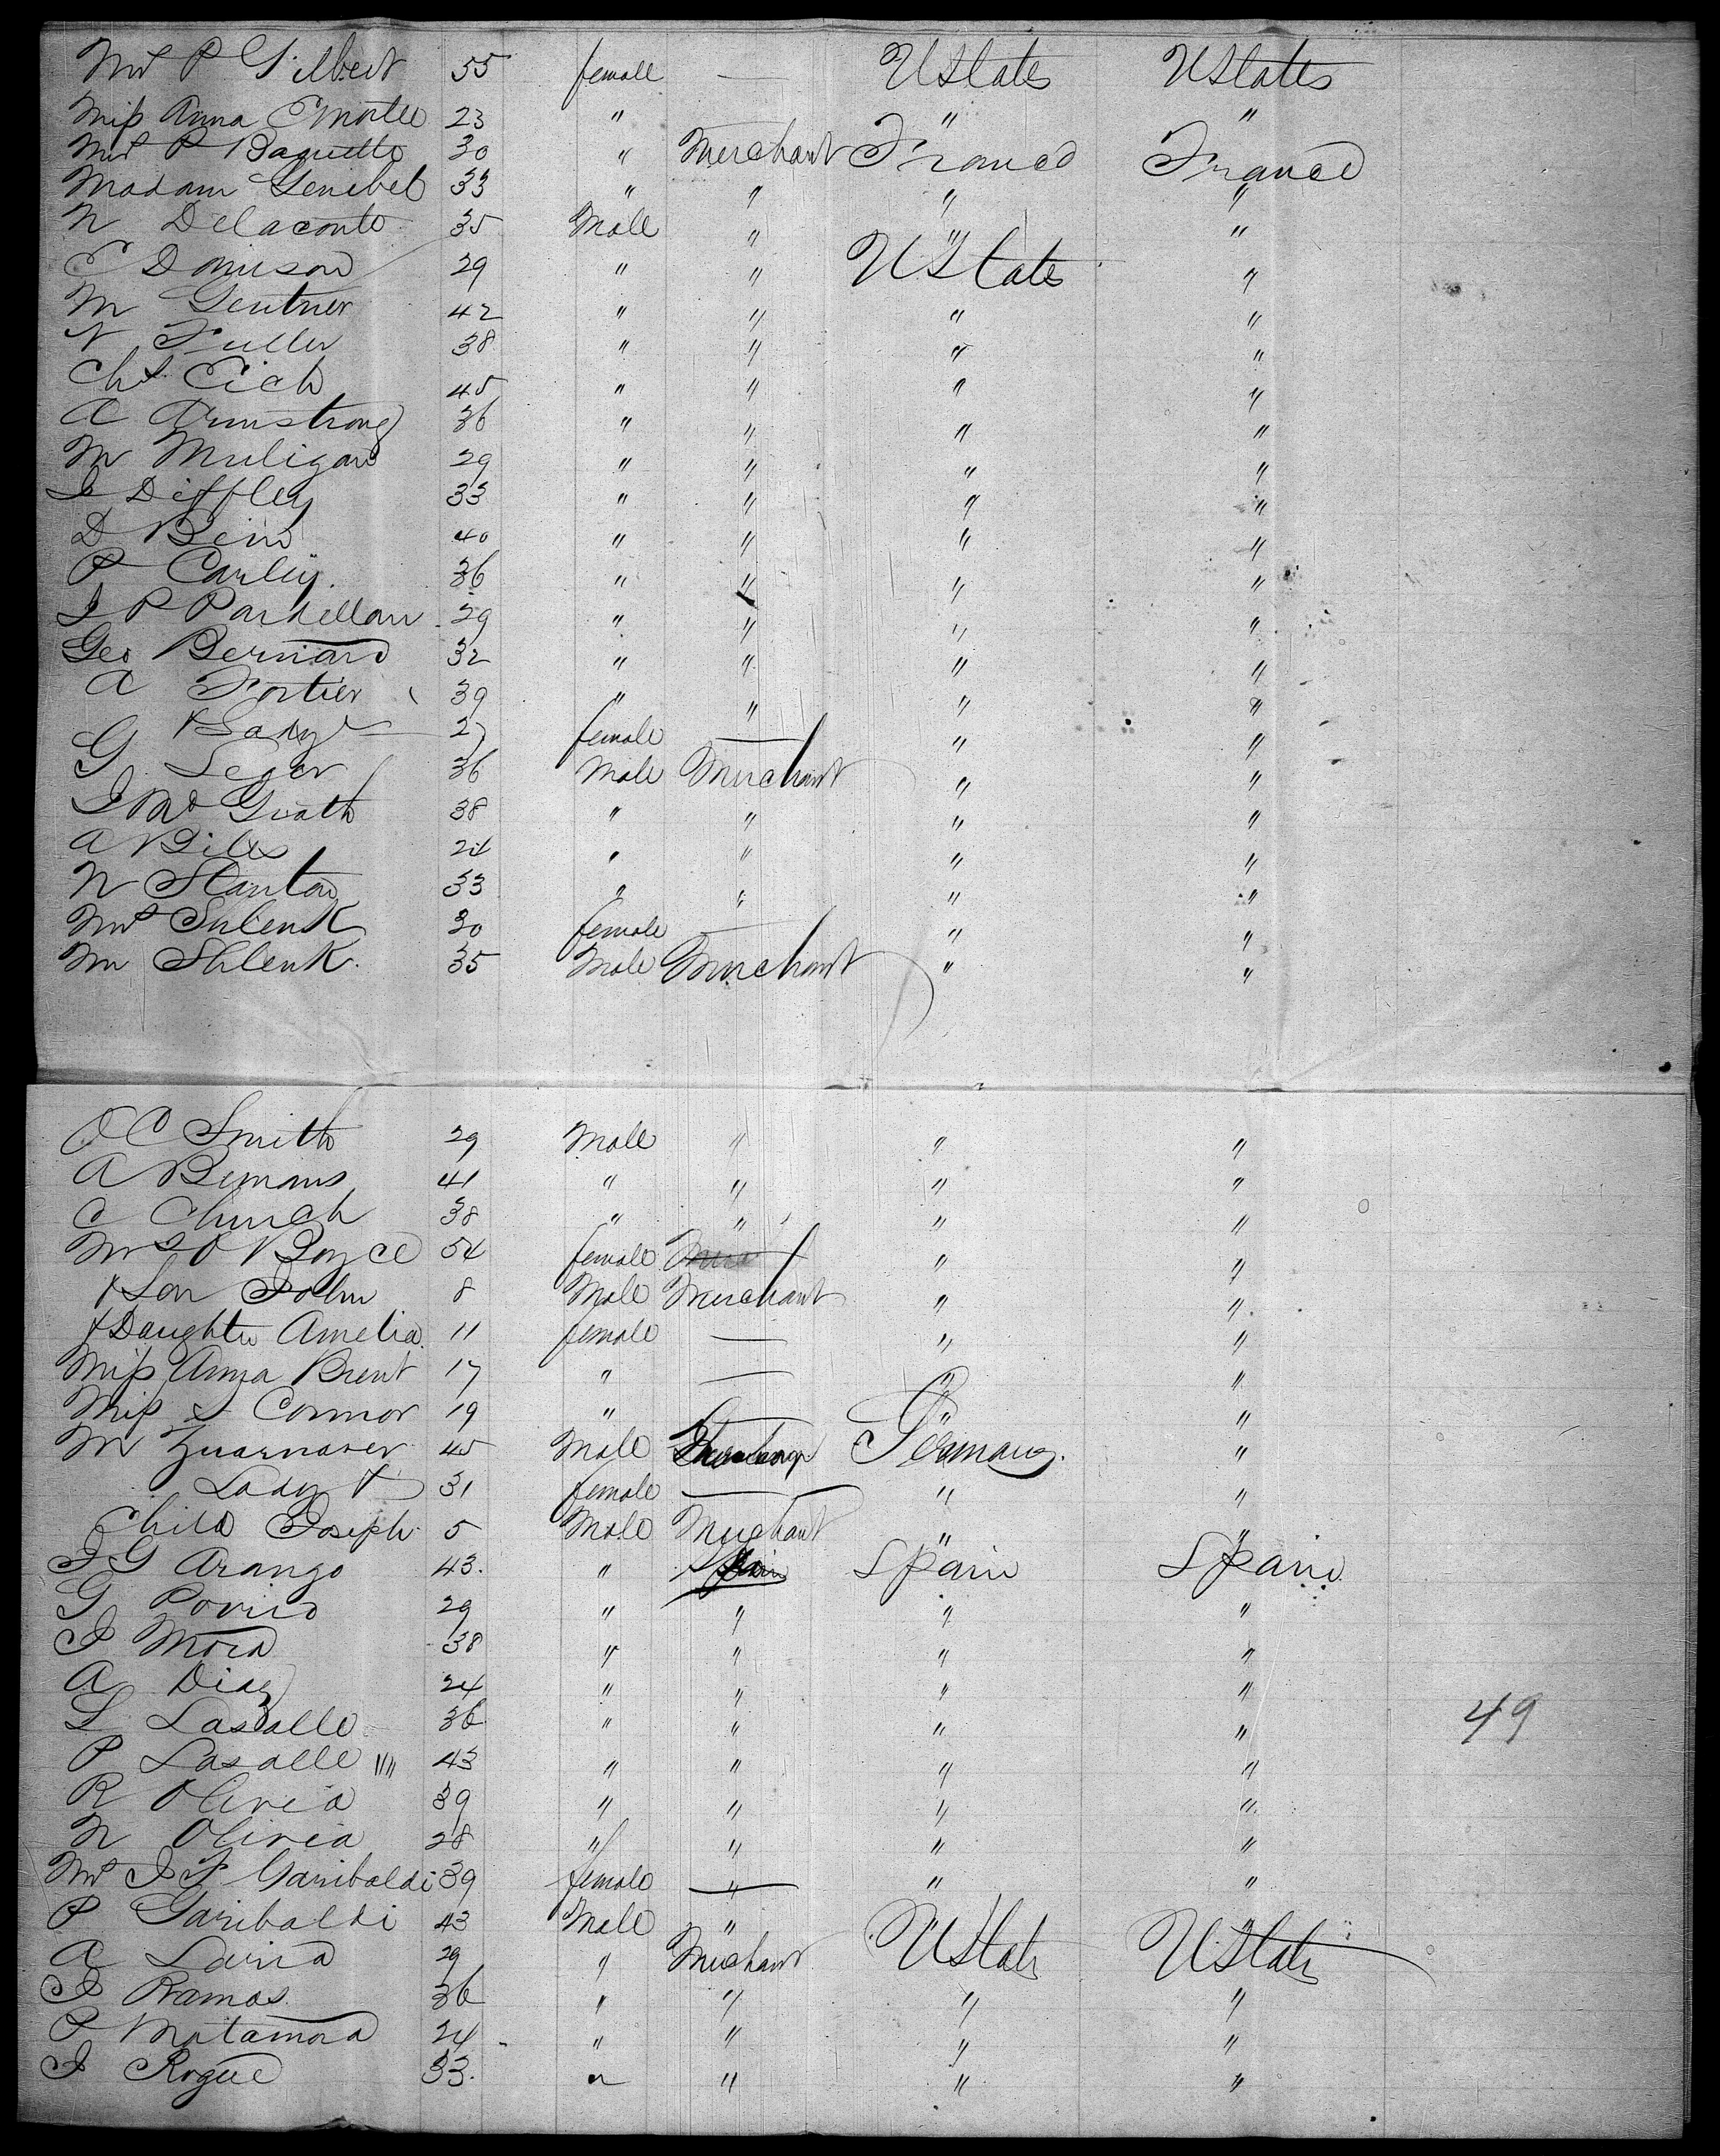 Mrs P Gilbert 55 female — UStates UStates
Miss Anna 23 " " "
Mrs P 30 " Merchant France France
Madam 33 " " " "
N Delaconto 35 Male " " "
E D 29 " " UStates "
M Gentner 42 " " " "
N Fuller 38 " " " "
Chs Eich 45 " " " "
A Armstrong 36 " " " "
M Muligan 29 " " " "
I Diffley 33 " " " "
D 40 " " " "
P Carley. 36 " " " "
I P 29 " " " "
Geo Bernard 32 " " " "
A Fortier 39 " " " "
& Lady 27 female — " "
G 36 Male Merchant " "
I Mc Grath 38 " " " "
A Biles 24 " " " "
N Stanton 33 " " " "
Mrs Shlenk 30 female — " "
M Shlenk. 35 Male Merchant " "
O C Smith 29 Male " " "
A Bemans 41 " " " "
C Church 38 " " " "
Mrs O Boyce 54 female " "
& Son John 8 Male Merchant " "
& Daughter Amelia. 11 female — " "
Miss Anna Brent 17 " — " "
Miss S Connor 19 " — " "
M 45 Male Germany. "
Lady & 31 female — " "
Child Joseph 5 Male Merchant " "
I G Arango 43. " Spain Spain
G 29 " " " "
I Mora 38 " " " "
A Diaz 24 " " " "
L Lasalle 36 " " " "
49
P Lasalle "" 43 " " " "
R Oliria 39 " " " "
N Oliria 28 " " " "
Mrs I F Garibaldi 39 female " " "
P Garibaldi 43 Male " " "
A 29 " Merchant UStates UStates
I Ramos 36 " " " "
P Matamora 24 " " " "
I Rogue 33. " " " "